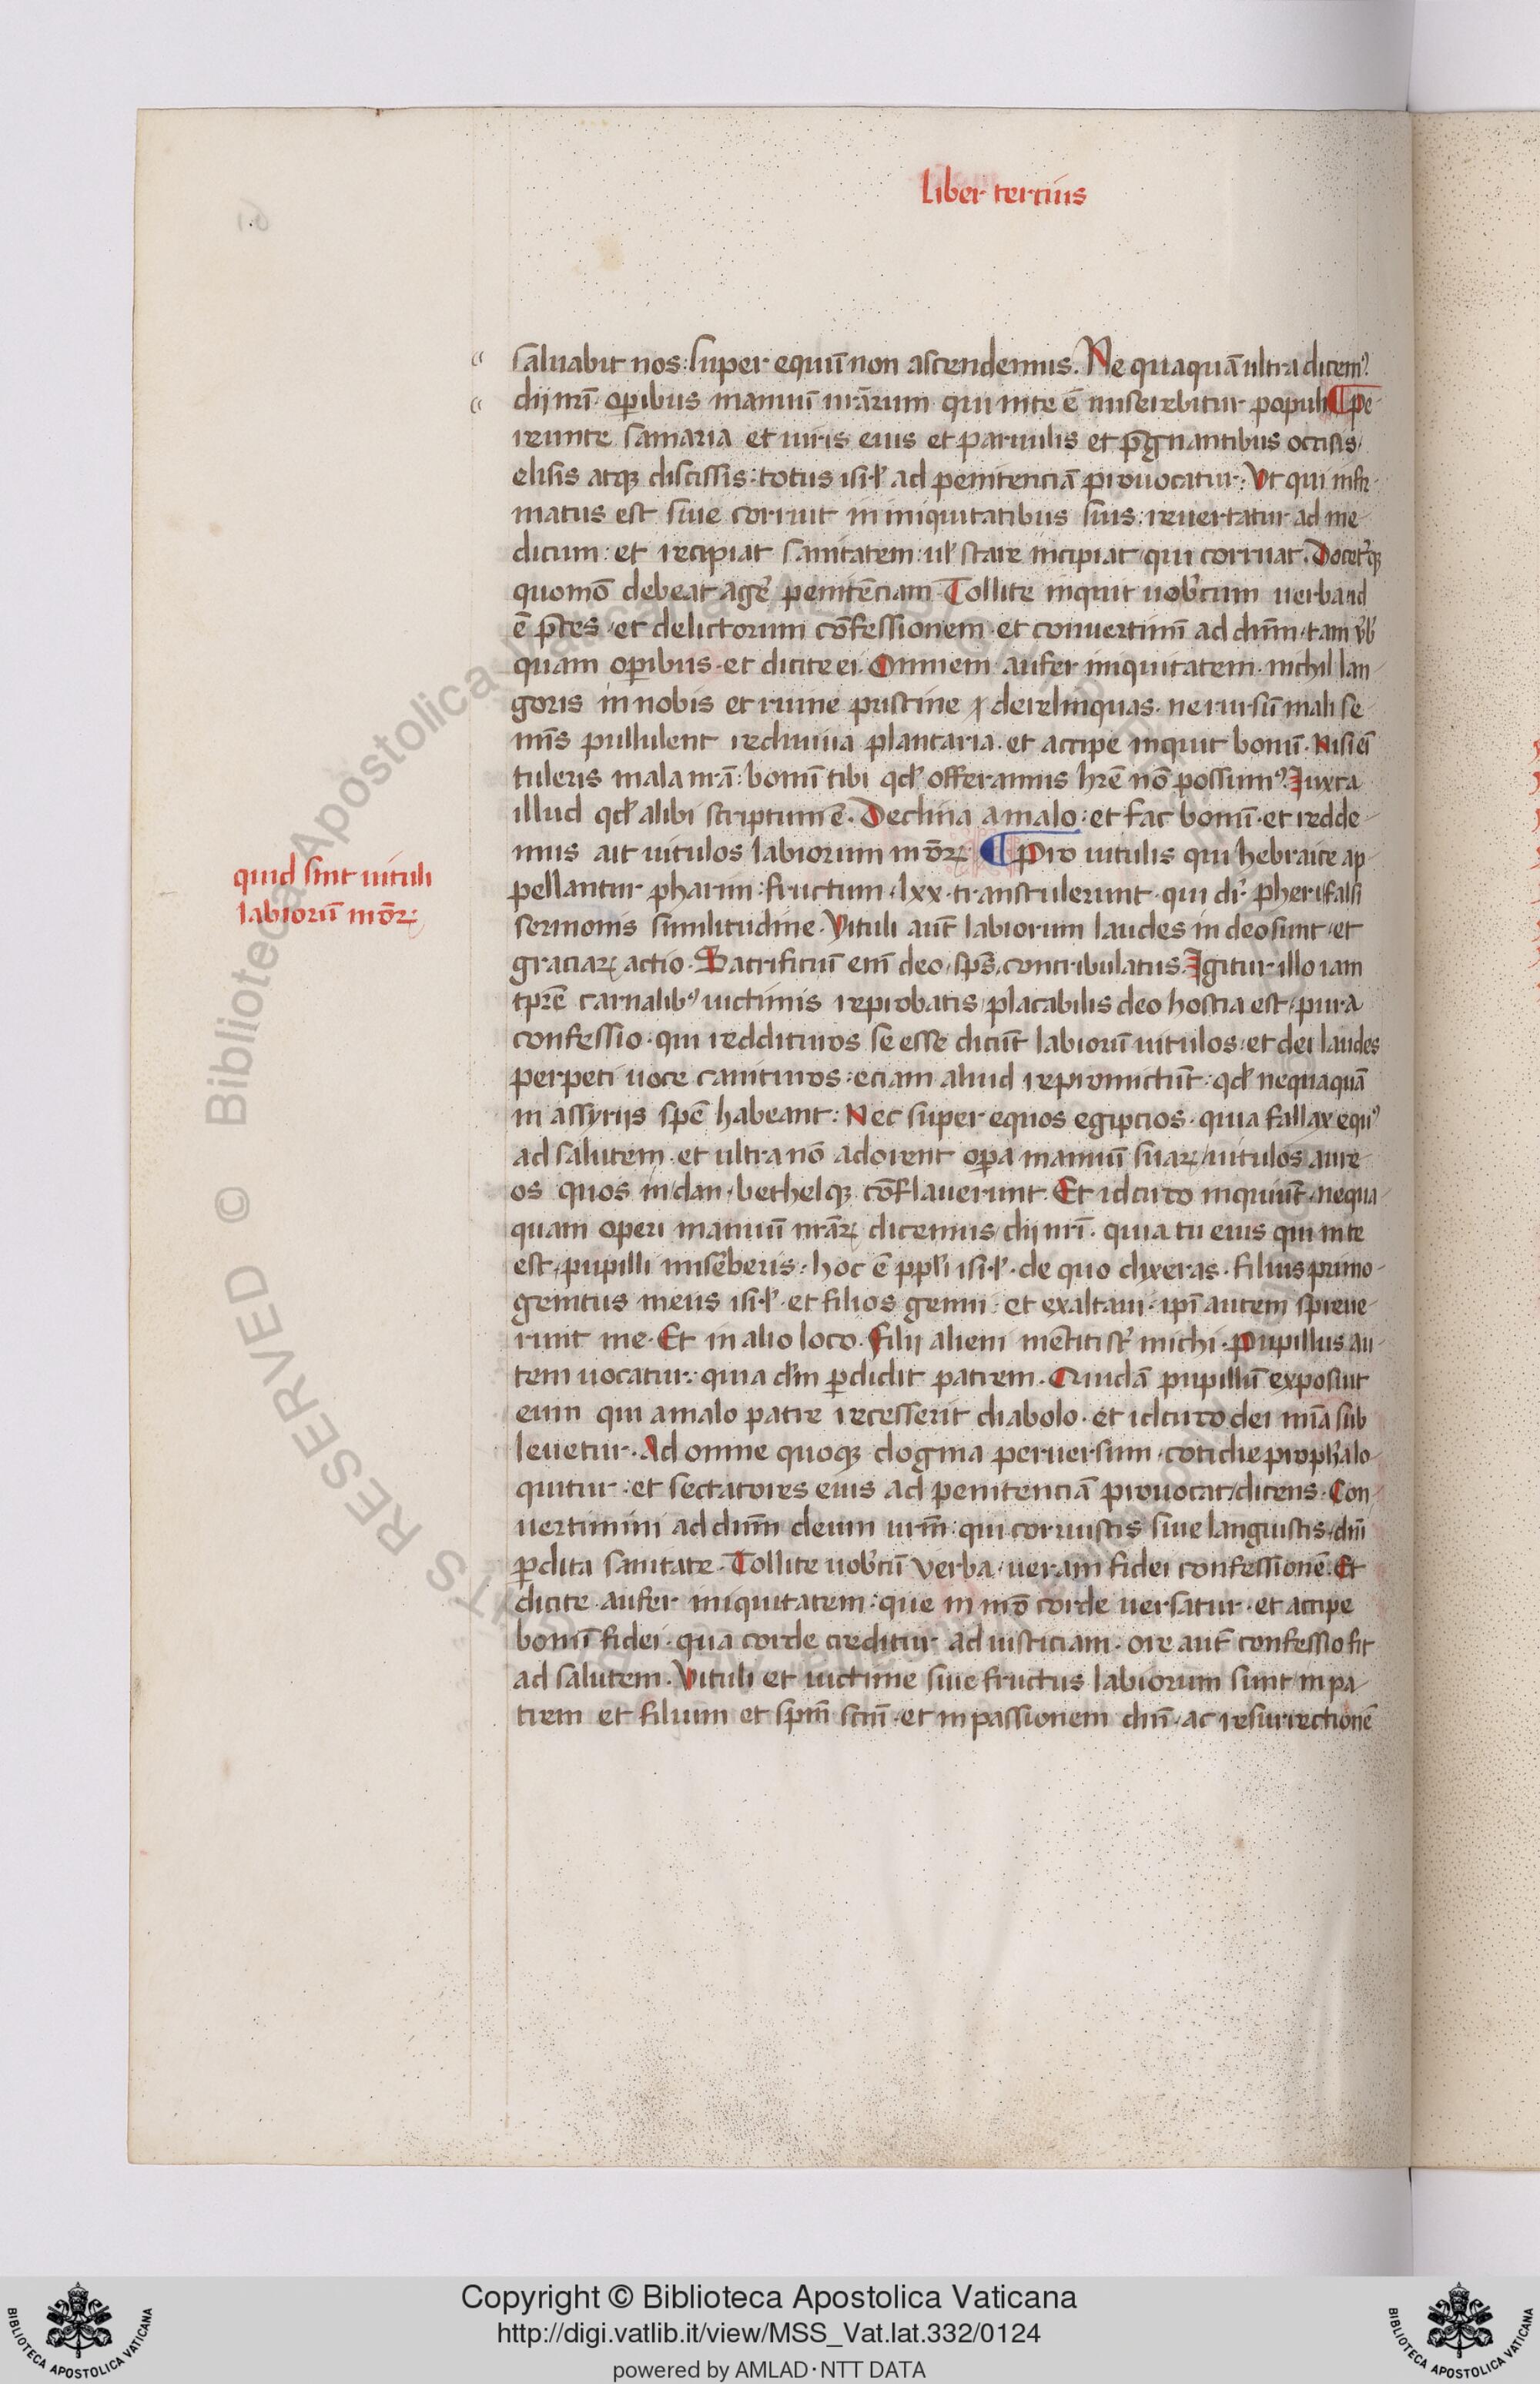 liber tercius
saluabit nos: super equū non ascendemus. Ne quaquā ultra dicemꝰ
dij nr̄i opibus manuū nr̄arum qui in te ē miserebitur populi ¶ pe-
reunte samaria et uiris eius et paruulis et p̄gnantibus occisis/
elisis atqꝫ discissis: totus isr̄l ad penitenciā prouocatur: Vt qui infir-
matus est siue corruit in iniquitatibus suis: reuertatur ad me-
dicum: et recipiat sanitatem: ul̄ stare incipiat qui corruat. Docetqꝫ
quomō debeat agē penitēciam Tollite inquit uobcum uerba id
ē p̄ces et delictorum cōfessionem et conuertimī ad dnm̄ tam v̄b
quam opibus et dicite ei. Omnem aufer iniquitatem. nichil lan-
goris in nobis et ruine pristine derelinquas. ne rursū mali se-
mīs pullulent rediuiua plantaria. et accipe inquit bonū. Nisi eī
tuleris mala nr̄a: bonū tibi qd̄ offeramus hr̄e nō possumꝰ. Juxta
illud qd̄ alibi scriptum ē. Declina a malo: et fac bonū. et redde-
mus ait uitulos labiorum nr̄oꝝ ¶ Pro uitulis qui hebraice ap-
pellantur pharim: fructum lxx transtulerunt qui dr̄ pheri falsi
quid sint uituli
labiorū nr̄oꝝ
sermonis similitudine. Vituli aut̄ labiorum laudes in deo sunt et
graciaꝝ actio. Sacrificiū em̄ deo sps̄ contribulatus. Igitur illo iam
tpr̄e carnalibꝰ uictimis reprobatis placabilis deo hostia est pura
confessio qui reddituros se esse dicūt labiorū uitulos et dei laudes
perpeti uoce canituros: eciam aliud repromictūt: qd̄ nequaquā
in assyrijs spē habeant: Nec super equos egipcios. quia fallax equꝰ
ad salutem et ultra nō adorent opa manuū suaꝝ uitulos aure-
os quos in dan bethelqꝫ cōflauerunt. Et idcirco inquiūt nequa-
quam operi manuū nr̄aꝝ dicemus dij nr̄i. quia tu eius qui in te
est pupilli miseberis. hoc ē ppl̄i isr̄l. de quo dixeras. filius primo-
genitus meus isr̄l et filios genui et exaltaui. ipī autem spreue-
runt me. Et in alio loco. Filii alieni mētiti st̄ michi. Pupillus au-
tem uocatur: quia dm̄ pdidit patrem. Quidā pupillū exposuit
eum qui a malo patre recesserit diabolo. et idcirco dei mīa sub
leuetur. Ad omne quoqꝫ dogma peruersum cotidie proph̄a lo-
quitur: et sectatores eius ad penitenciā prouocat dicens. Con-
uertimini ad dnm̄ deum ur̄m: qui corruistis siue languistis dn̄i
pdita sanitate. Tollite uobcū verba ueram fidei confessionē. Et
dicite aufer iniquitatem: que in nr̄o corde uersatur et accipe
bonū fidei. qua corde creditur ad iusticiam. ore aut̄ confessio fit
ad salutem. Vituli et uictime siue fructus labiorum sunt in pa-
trem et filium et spm̄ scm̄ et in passionem dn̄i ac resurrectionē
Copyright © Biblioteca Apostolica Vaticana
http://digi.vatlib.it/view/MSS_Vat.lat.332/0124
powered by AMLAD·NTT DATA